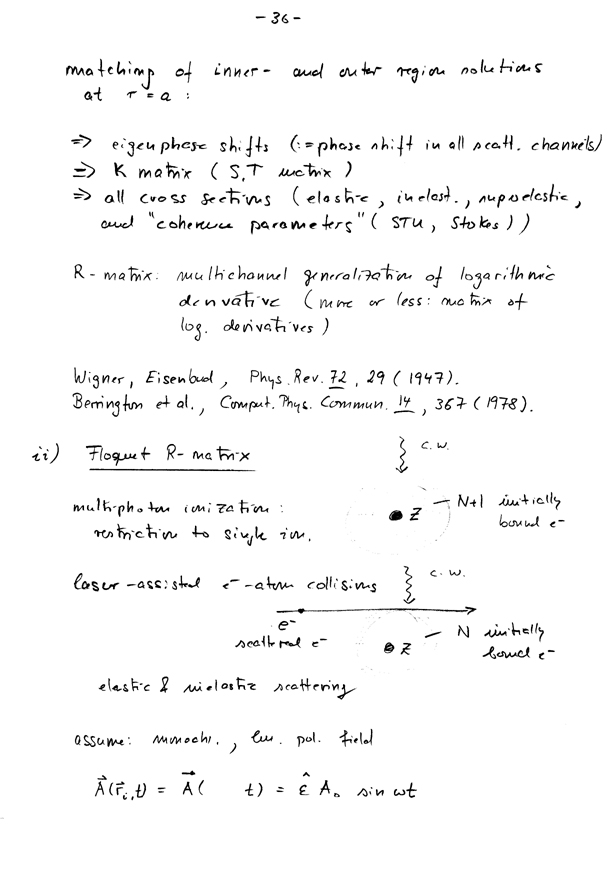 - 36 -
matching of inner- and outer region solutions
at r = a :
=> eigenphase shifts (:= phase shift in all scatt. channels)
=> K matrix ( S,T matrix )
=> all cross sections (elastic, inelast., superelastic,
and "coherence parameters" ( STU, Stokes ) )
R-matrix: multichannel generalization of logarithmic
derivative (more or less: matrix of
log. derivatives )
Wigner, Eisenbud, Phys. Rev. 72, 29 (1947).
Berrington et al., Comput. Phys. Commun. 14, 367 (1978).
ii) Floquet R-matrix
c.w.
multiphoton ionization :
restriction to single ion.
Z
N+1 initially
bound e-
laser-assisted e- -atom collisions
c.w.
e-
scattered e-
Z
N initially
bound e-
elastic & inelastic scattering
assume: monochr., lin. pol. field
A⃗(r⃗i,t) = A⃗( t) = ε̂ A₀ sin ωt